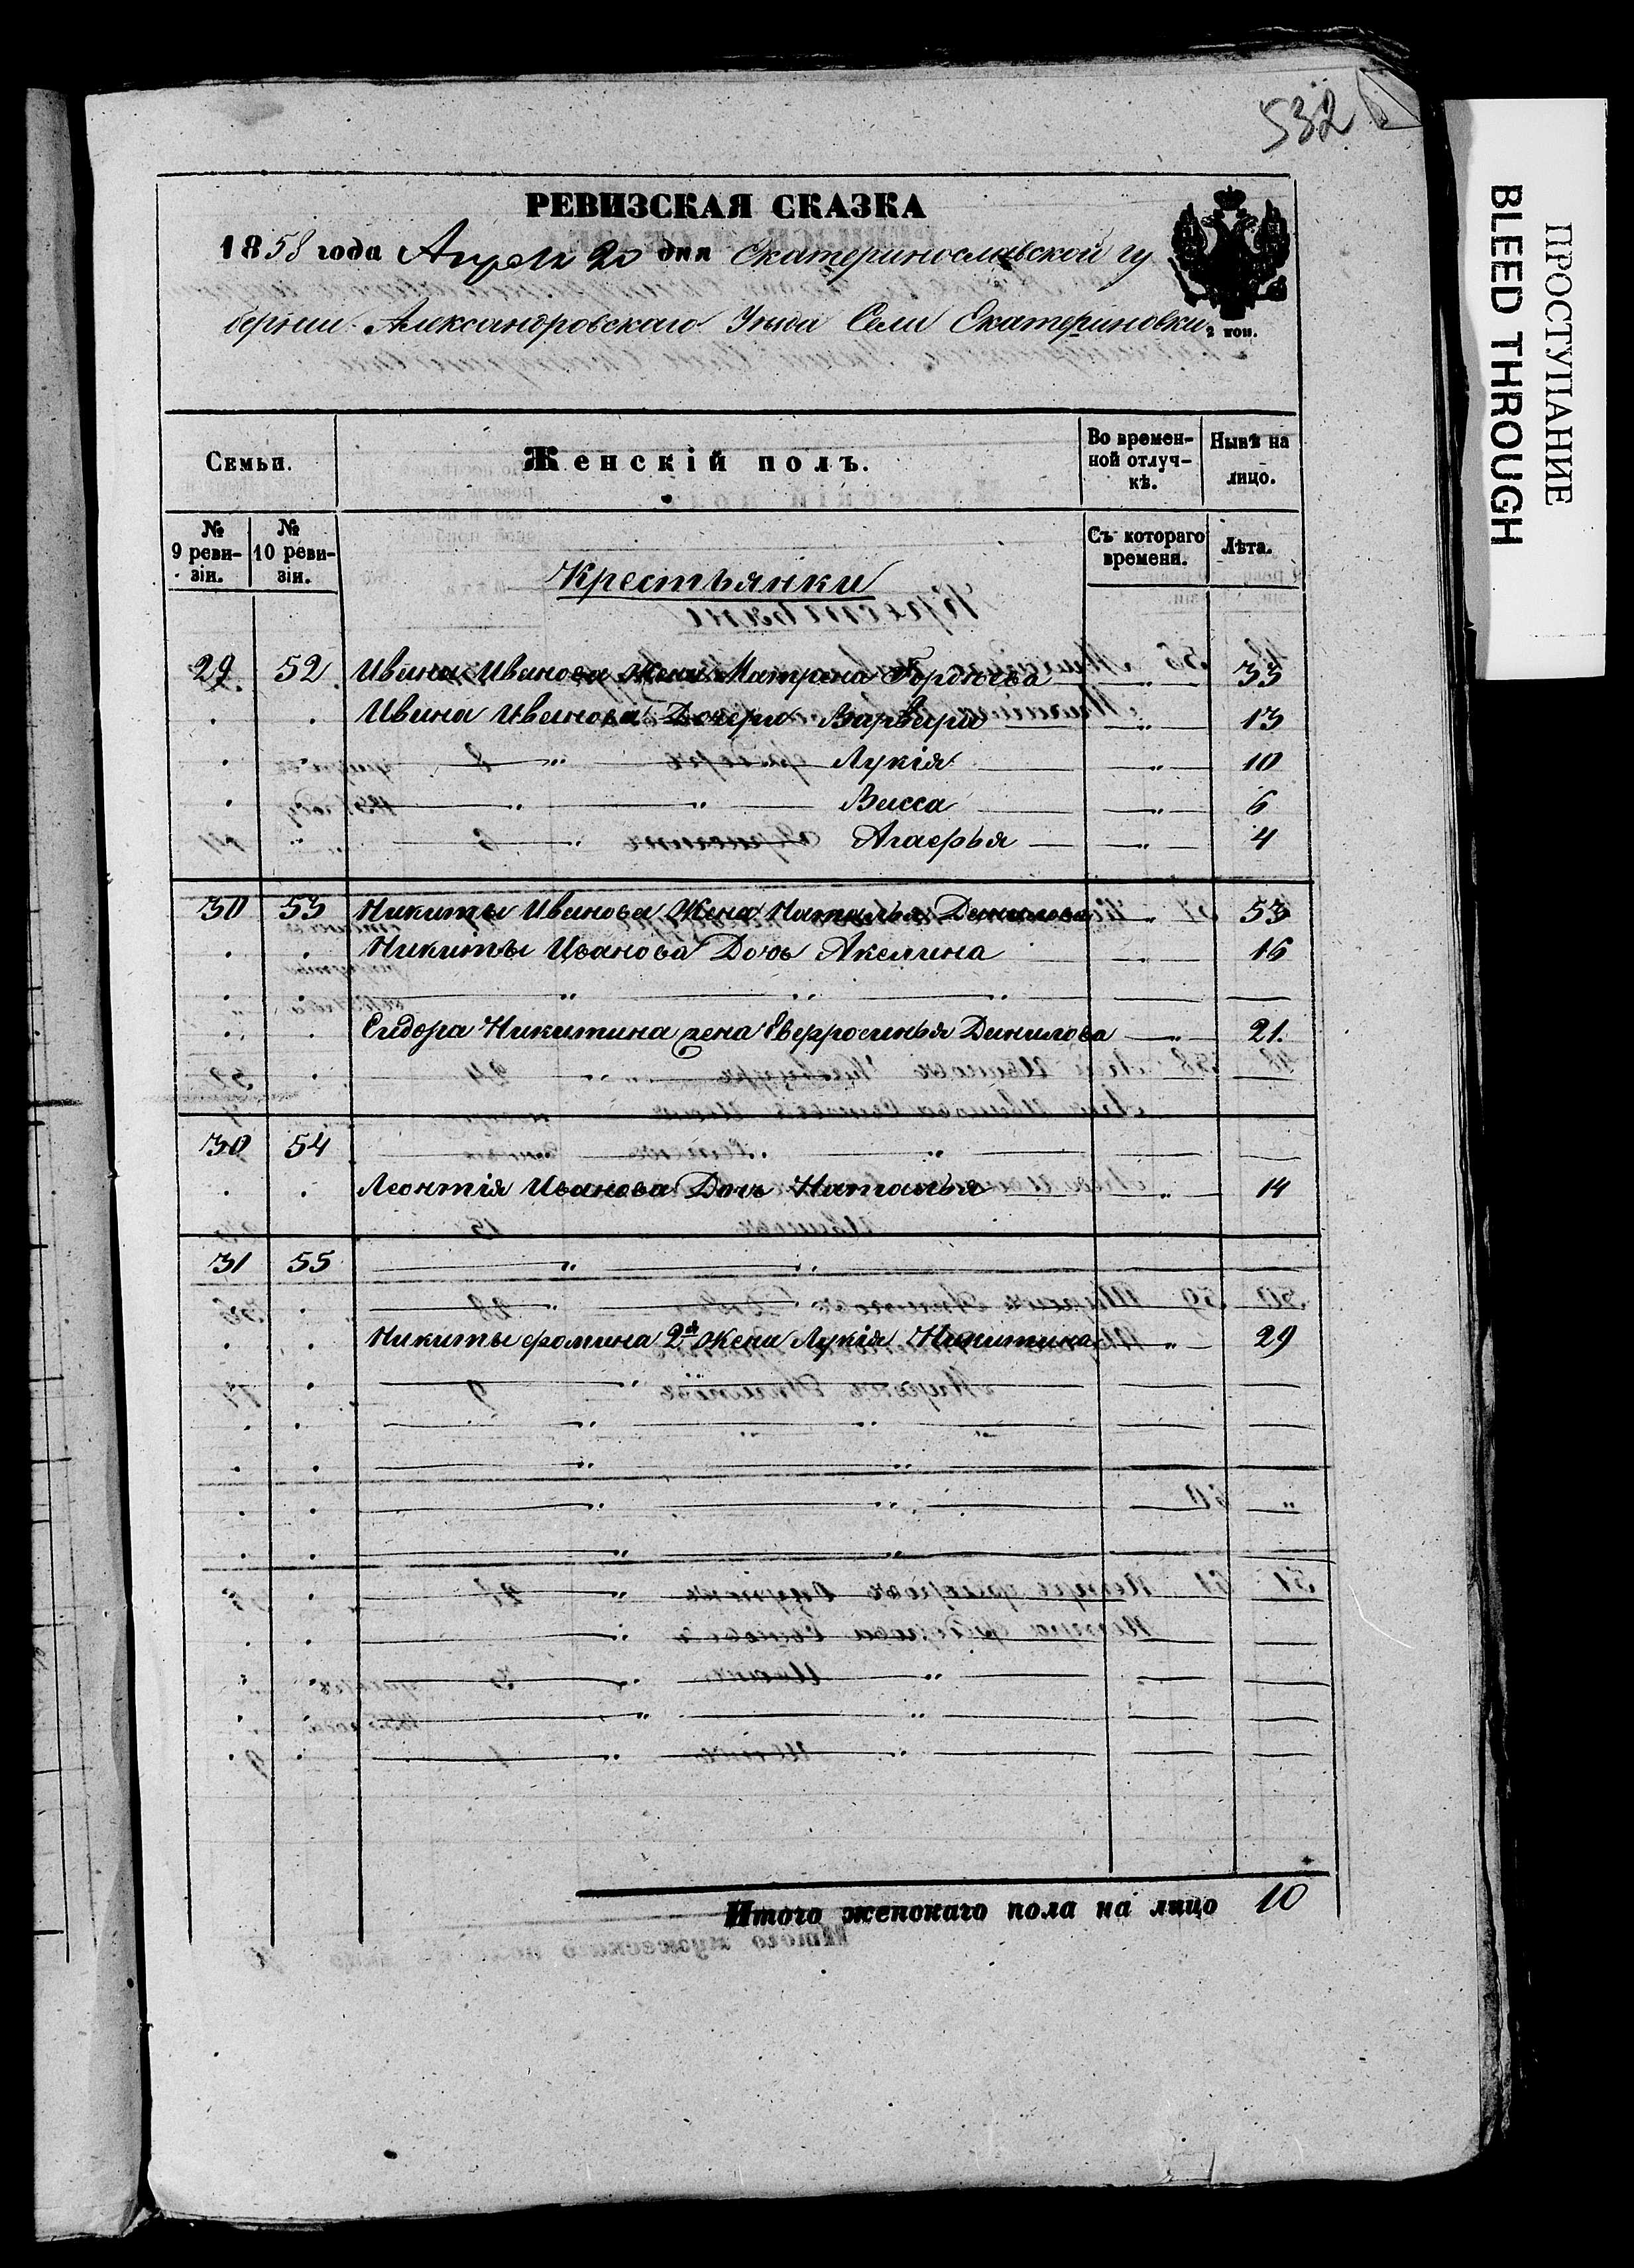 532
РЕВИЗСКАЯ СКАЗКА
1858 года Апреля 20 дня Екатеринославской гу
берніи Александровскаго Уезда Села Екатериновки
2 коп.
Семьи. Женскій полъ. Во времен-ной отлуч-кѣ. Нынѣ на лицо.
№ 9 реви-зіи. № 10 реви-зіи. Съ котораго времени. Лѣта.
Крестьянки
29 52 Ивана Иванова жена Матрена Гордѣева — „ — 33
. . Ивана Иванова Дочери Варвара — „ — 13
. „ Лукія — „ — 10
. „ „ Васса — „ — 6
„ „ Агафья — „ — 4
30 53 Никиты Иванова Жена Наталья Данилова „ 53
. . Никиты Иванова Дочь Акелина — „ — 16
. . „ „ „
. . Сидора Никитина жена Евфросинья Данилова — „ — 21.
30 54 „ „
. . Леонтія Иванова Дочь Наталья — „ — 14
31 55 „ „
. . Никиты Фомина 2я жена Лукія Никитина — „ — 29
Итого женскаго пола на лицо 10
ПРОСТУПАНИЕ
BLEED THROUGH